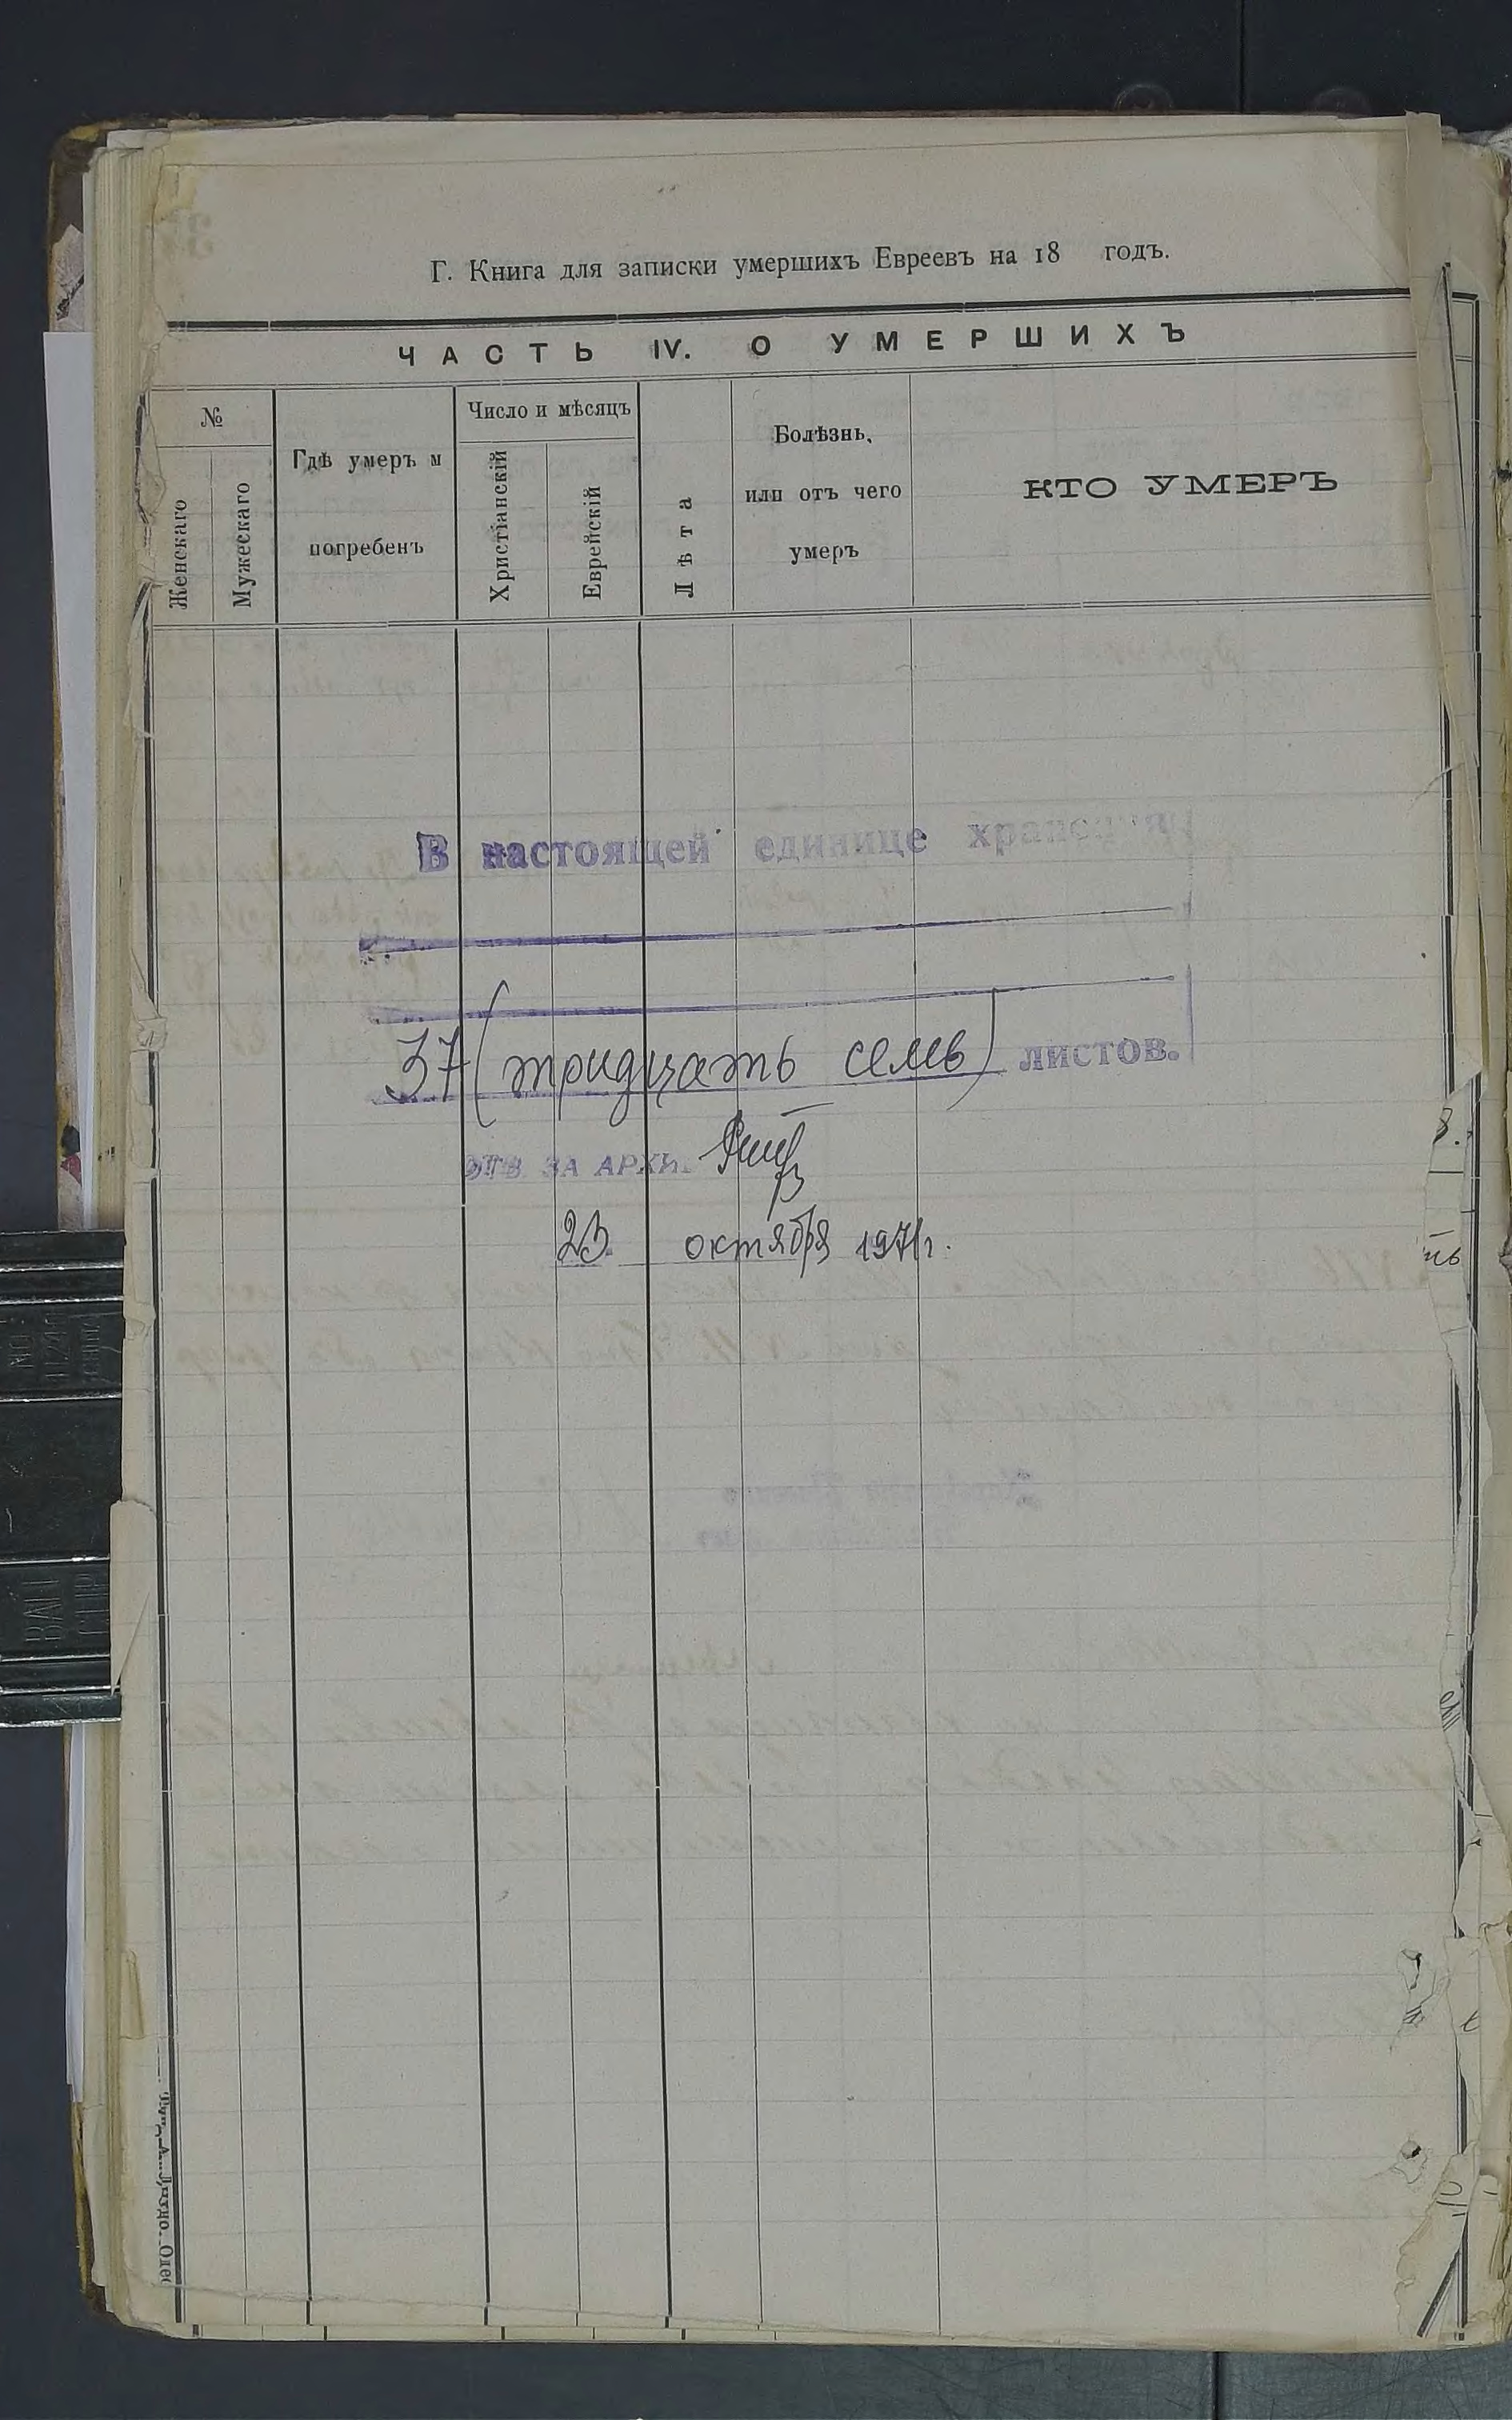 Г. Книга для записки умершихъ Евреевъ на 18 годъ.
ЧАСТЬ IV. О УМЕРШИХЪ
№
Женскаго
Мужескаго
Гдѣ умеръ и
погребенъ
Число и мѣсяцъ
Христіанскій
Еврейскій
Лѣта
Болѣзнь,
или отъ чего
умеръ
КТО УМЕРЪ
В настоящей единице хранения
37 (тридцать семь) листов.
ОТВ. ЗА АРХИВ
23 октября 1971г.
BALL
CLIP